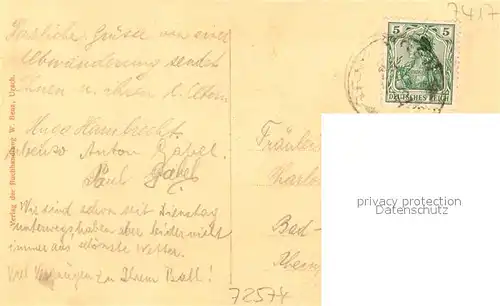 7417
5 5
DEUTSCHES REICH
Herzliche Grüsse von einer
Albwanderung sendet
Ihnen u. Ihren l. Eltern
Hugo Hambrecht.
ebenso Anton Gabel.
Paul Gabel
Wir sind schon seit Dienstag
unterwegs, haben aber leider nicht
immer das schönste Wetter.
Viel Vergnügen zu Ihrem Ball!
Verlag der Buchhandlung W. Benz, Urach.
Fräulein
Bad-
privacy protection
Datenschutz
72574